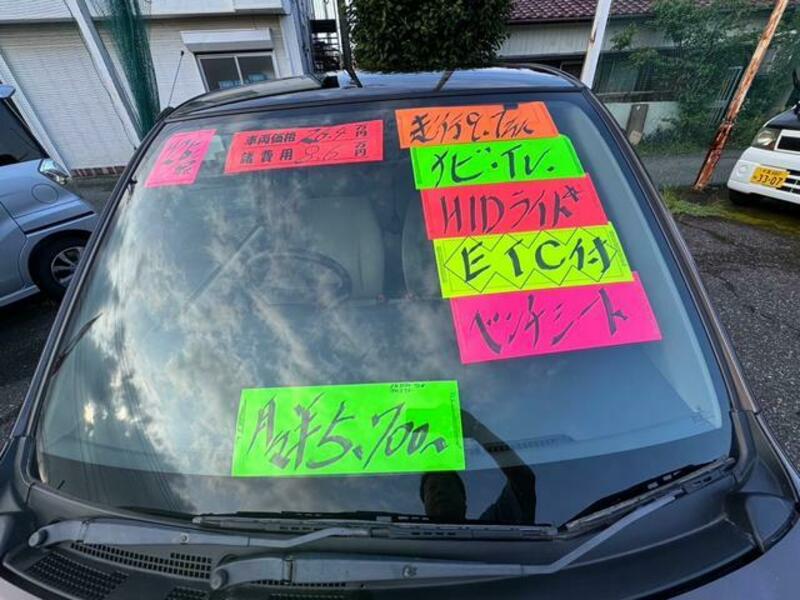 車両価格 26.4万円
諸費用 9.6万円
走行9.7万K
ナビ・TV.
HIDライト
ETC付
ベンチシート
月々¥5,700~
3307